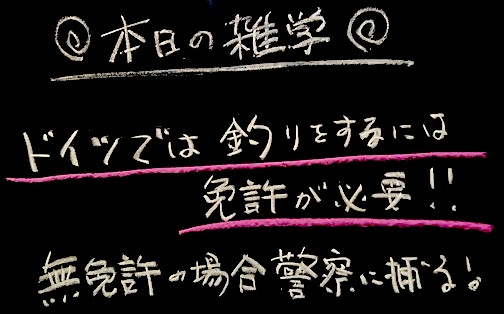 本日の雑学
ドイツでは釣りをするには
免許が必要!!
無免許の場合警察に捕る!